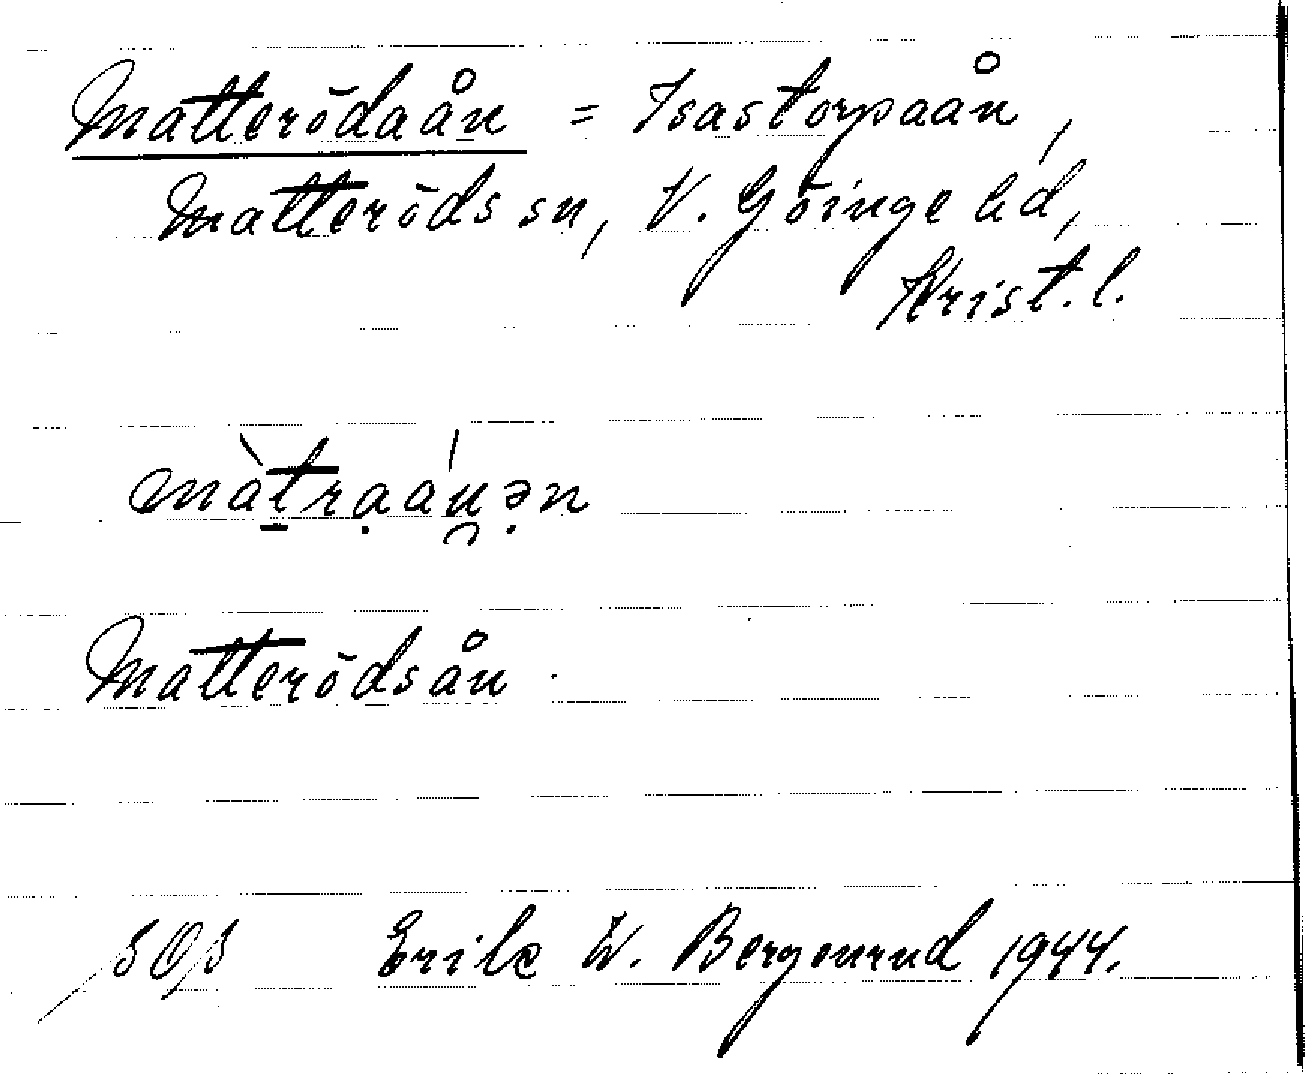 Matterödaån = Isastorpaån,
Matteröds sn, V. Göinge hd,
Krist. l.
màtraáu̯ən
Matterödsån.
Erik W. Bergenrud 1944.